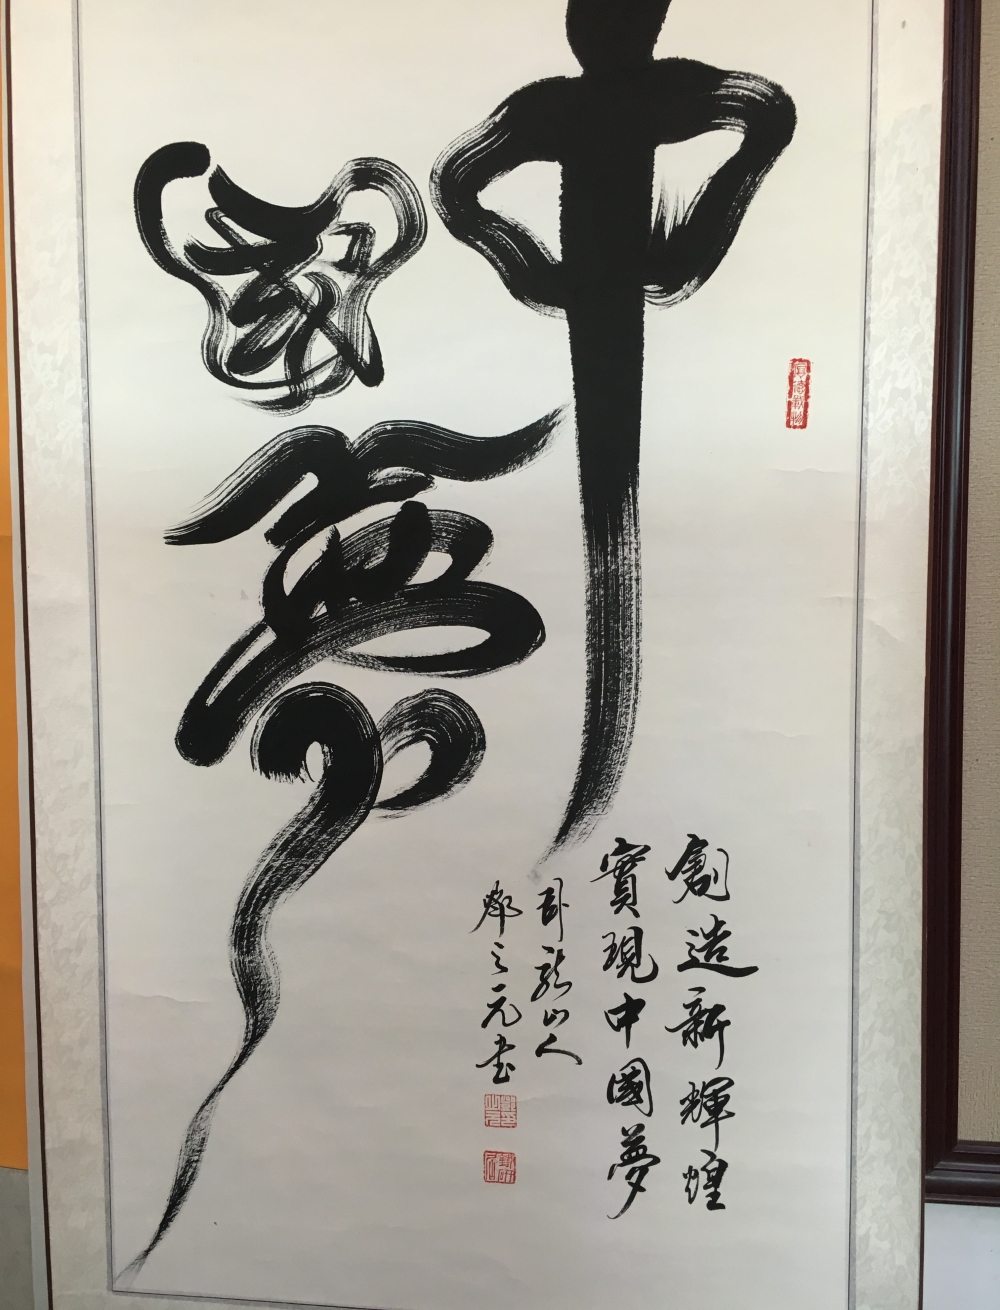 中
國夢
創造新輝煌
實現中國夢
卧龍山人
鄭之元書